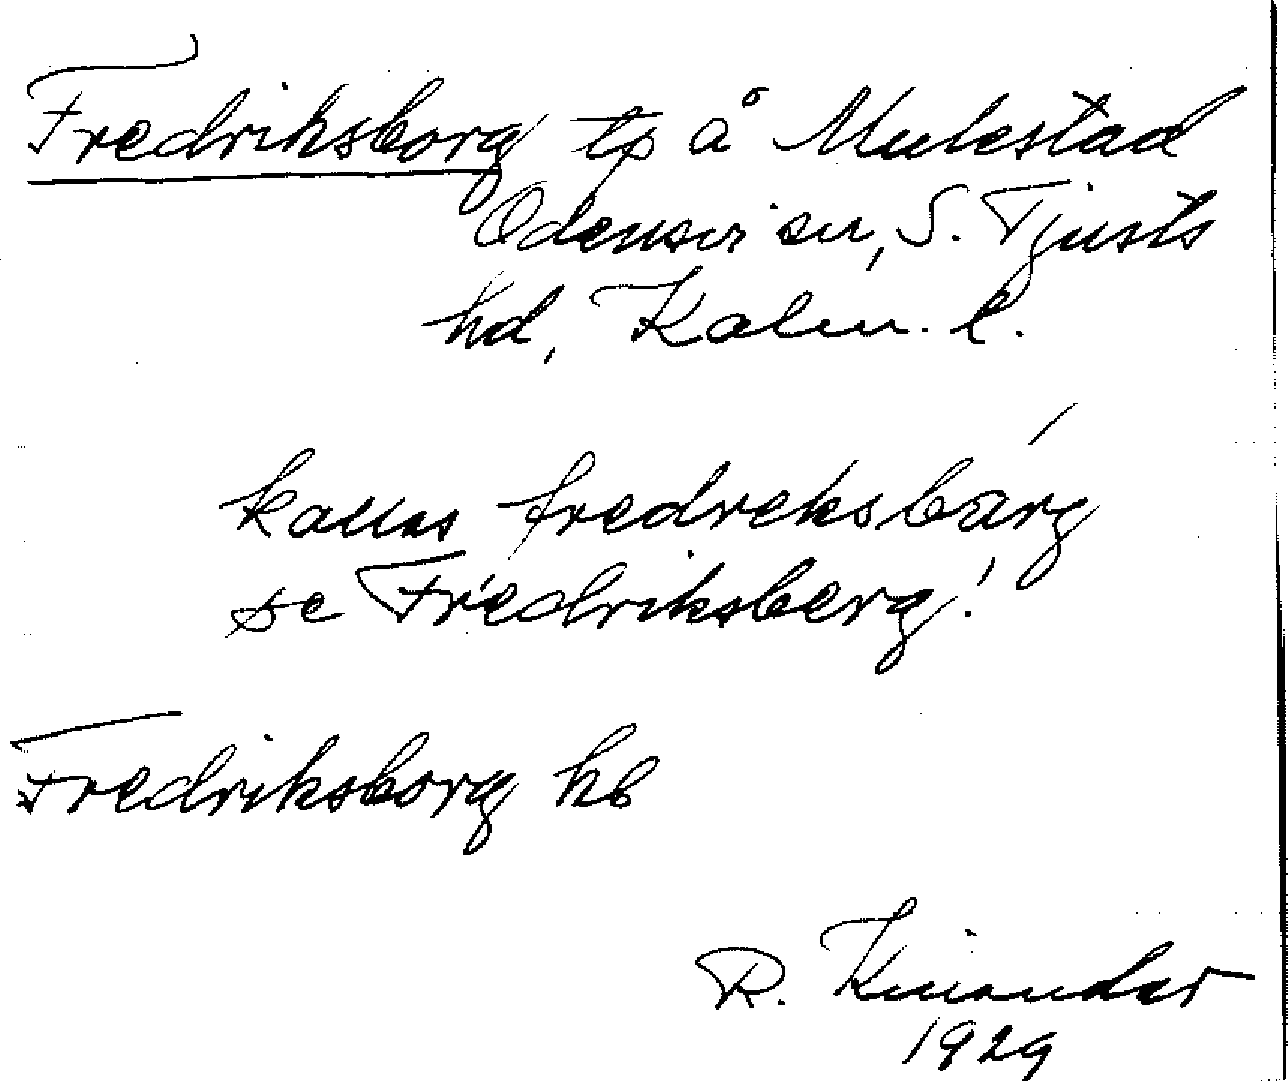 Fredriksborg tp å Mulestad
Odensvi sn, S. Tjusts
hd, Kalm. l.
kallas fredreksbarg
se Fredriksberg!
Fredriksborg kb
R. Kinander
1929